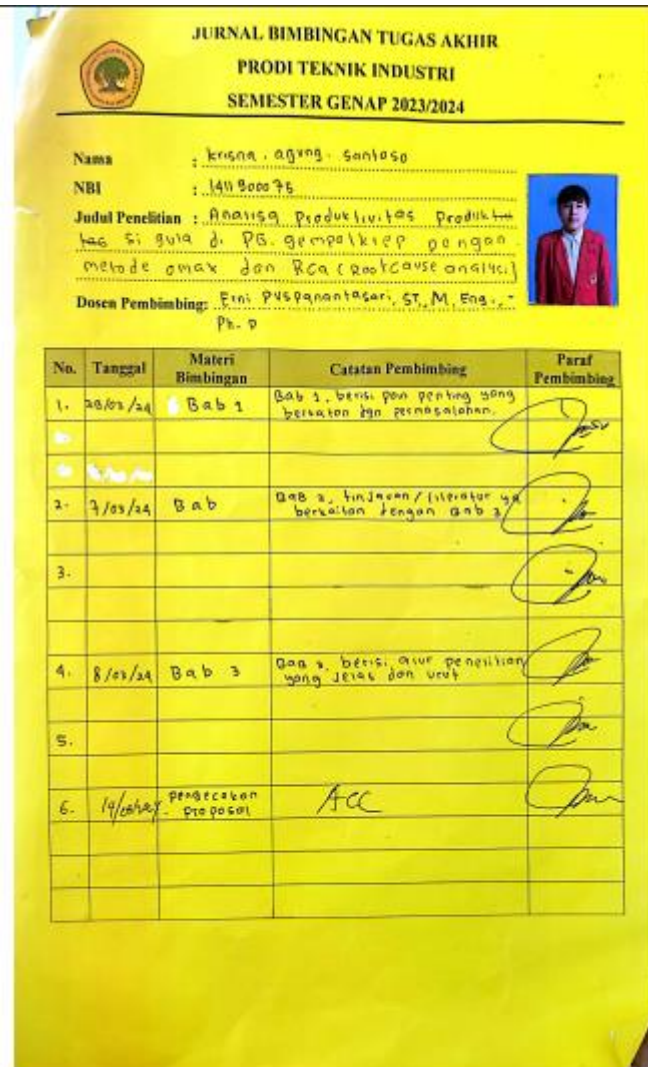 JURNAL BIMBINGAN TUGAS AKHIR
PRODI TEKNIK INDUSTRI
SEMESTER GENAP 2023/2024
Nama : krisna . agung . santoso
NBI : 1411900075
Judul Penelitian : Analisa Produktivitas Produkti
tas si gula di PG. gempolkrep dengan
metode omax dan RCA (Root cause analyci)
Dosen Pembimbing: Erni Puspanantasari, ST., M, Eng.,
Ph. D
No. Tanggal Materi Bimbingan Catatan Pembimbing Paraf Pembimbing
1. /24 Bab 1 Bab 1, berisi poin penting yang
berkaitan dgn permasalahan.
2. 7/03/24 Bab Bab 2, tinjauan / literatur yg
berkaitan dengan Bab 2
3.
4. 8/03/24 Bab 3 Bab 3, berisi alur penelitian
yang jelas dan urut
5.
6. pengecekan ACC
proposal